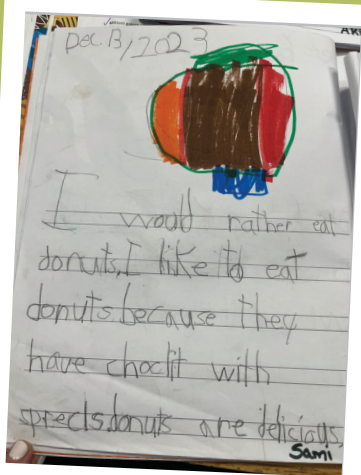 Dec. 13, 2023
I would rather eat
donuts. I like to eat
donuts because they
have choclit with
sprects. donuts are delicious.
Sami